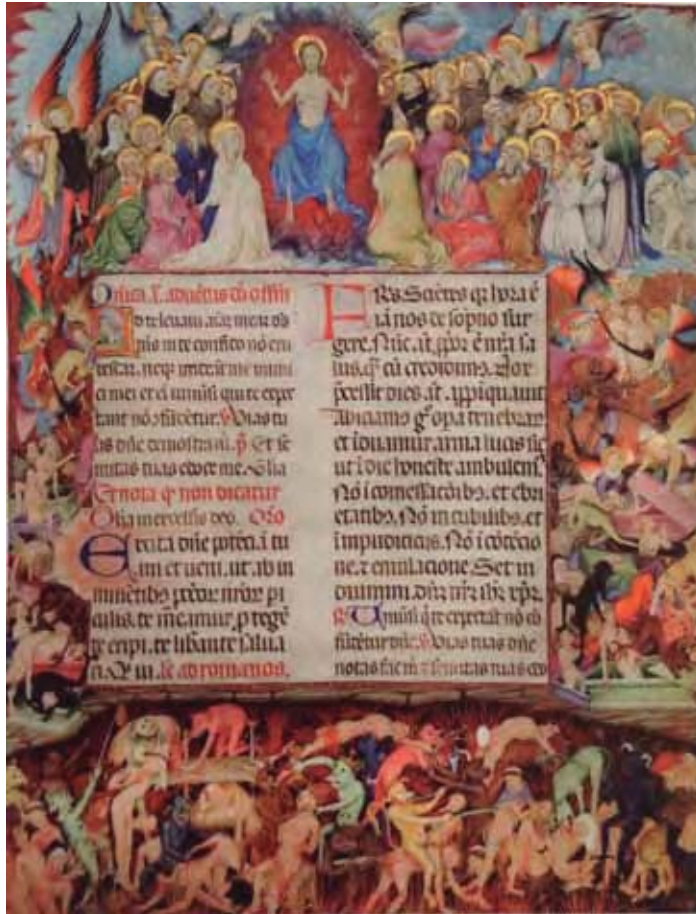 Dnica .I. aduētus dñi offm
d te leuaui. aīaz meaz ds
ms in te confido nō eru
bescaz. neqz
ei mei et ei uniūsi qui te expe
tant nō cōfūdētur. Vias tu
as dñe demostra m. p. Et se
mitas tuas edoce me. Glia
Et nota qz non dicatur
Glia in excelsis deo. Oro
Excita dñe potēcīā tu
am et ueni. ut ab in
minētibz pccōr nr̄or pi
culis. te
te eripi. te libante salua
ri. Qui ui. Ie ad romanos.
FRs. Sciētes qz hora ē
iā nos de sopno sur
gere. Nūc. n. ppior ē nr̄a sa
lus. qz cū credidimz. Nox
pcessit dies. āt. appiquauit
Abiciamz g° opa tenebraz
et iduamur. arma lucis sic
ut i die honeste. ambulemz
Nō i comessacōibz. et ebri
etatibz. Nō in cubilibz. et
ipudiciciis. Nō i cōtēcio
ne. z emulacione. Set in
duimini. dñz nrm ihm xpm.
Uniūsi q te expectāt nō cō
fūdētur dñe. Vias tuas dñe
notas fac m z semitas tuas edo